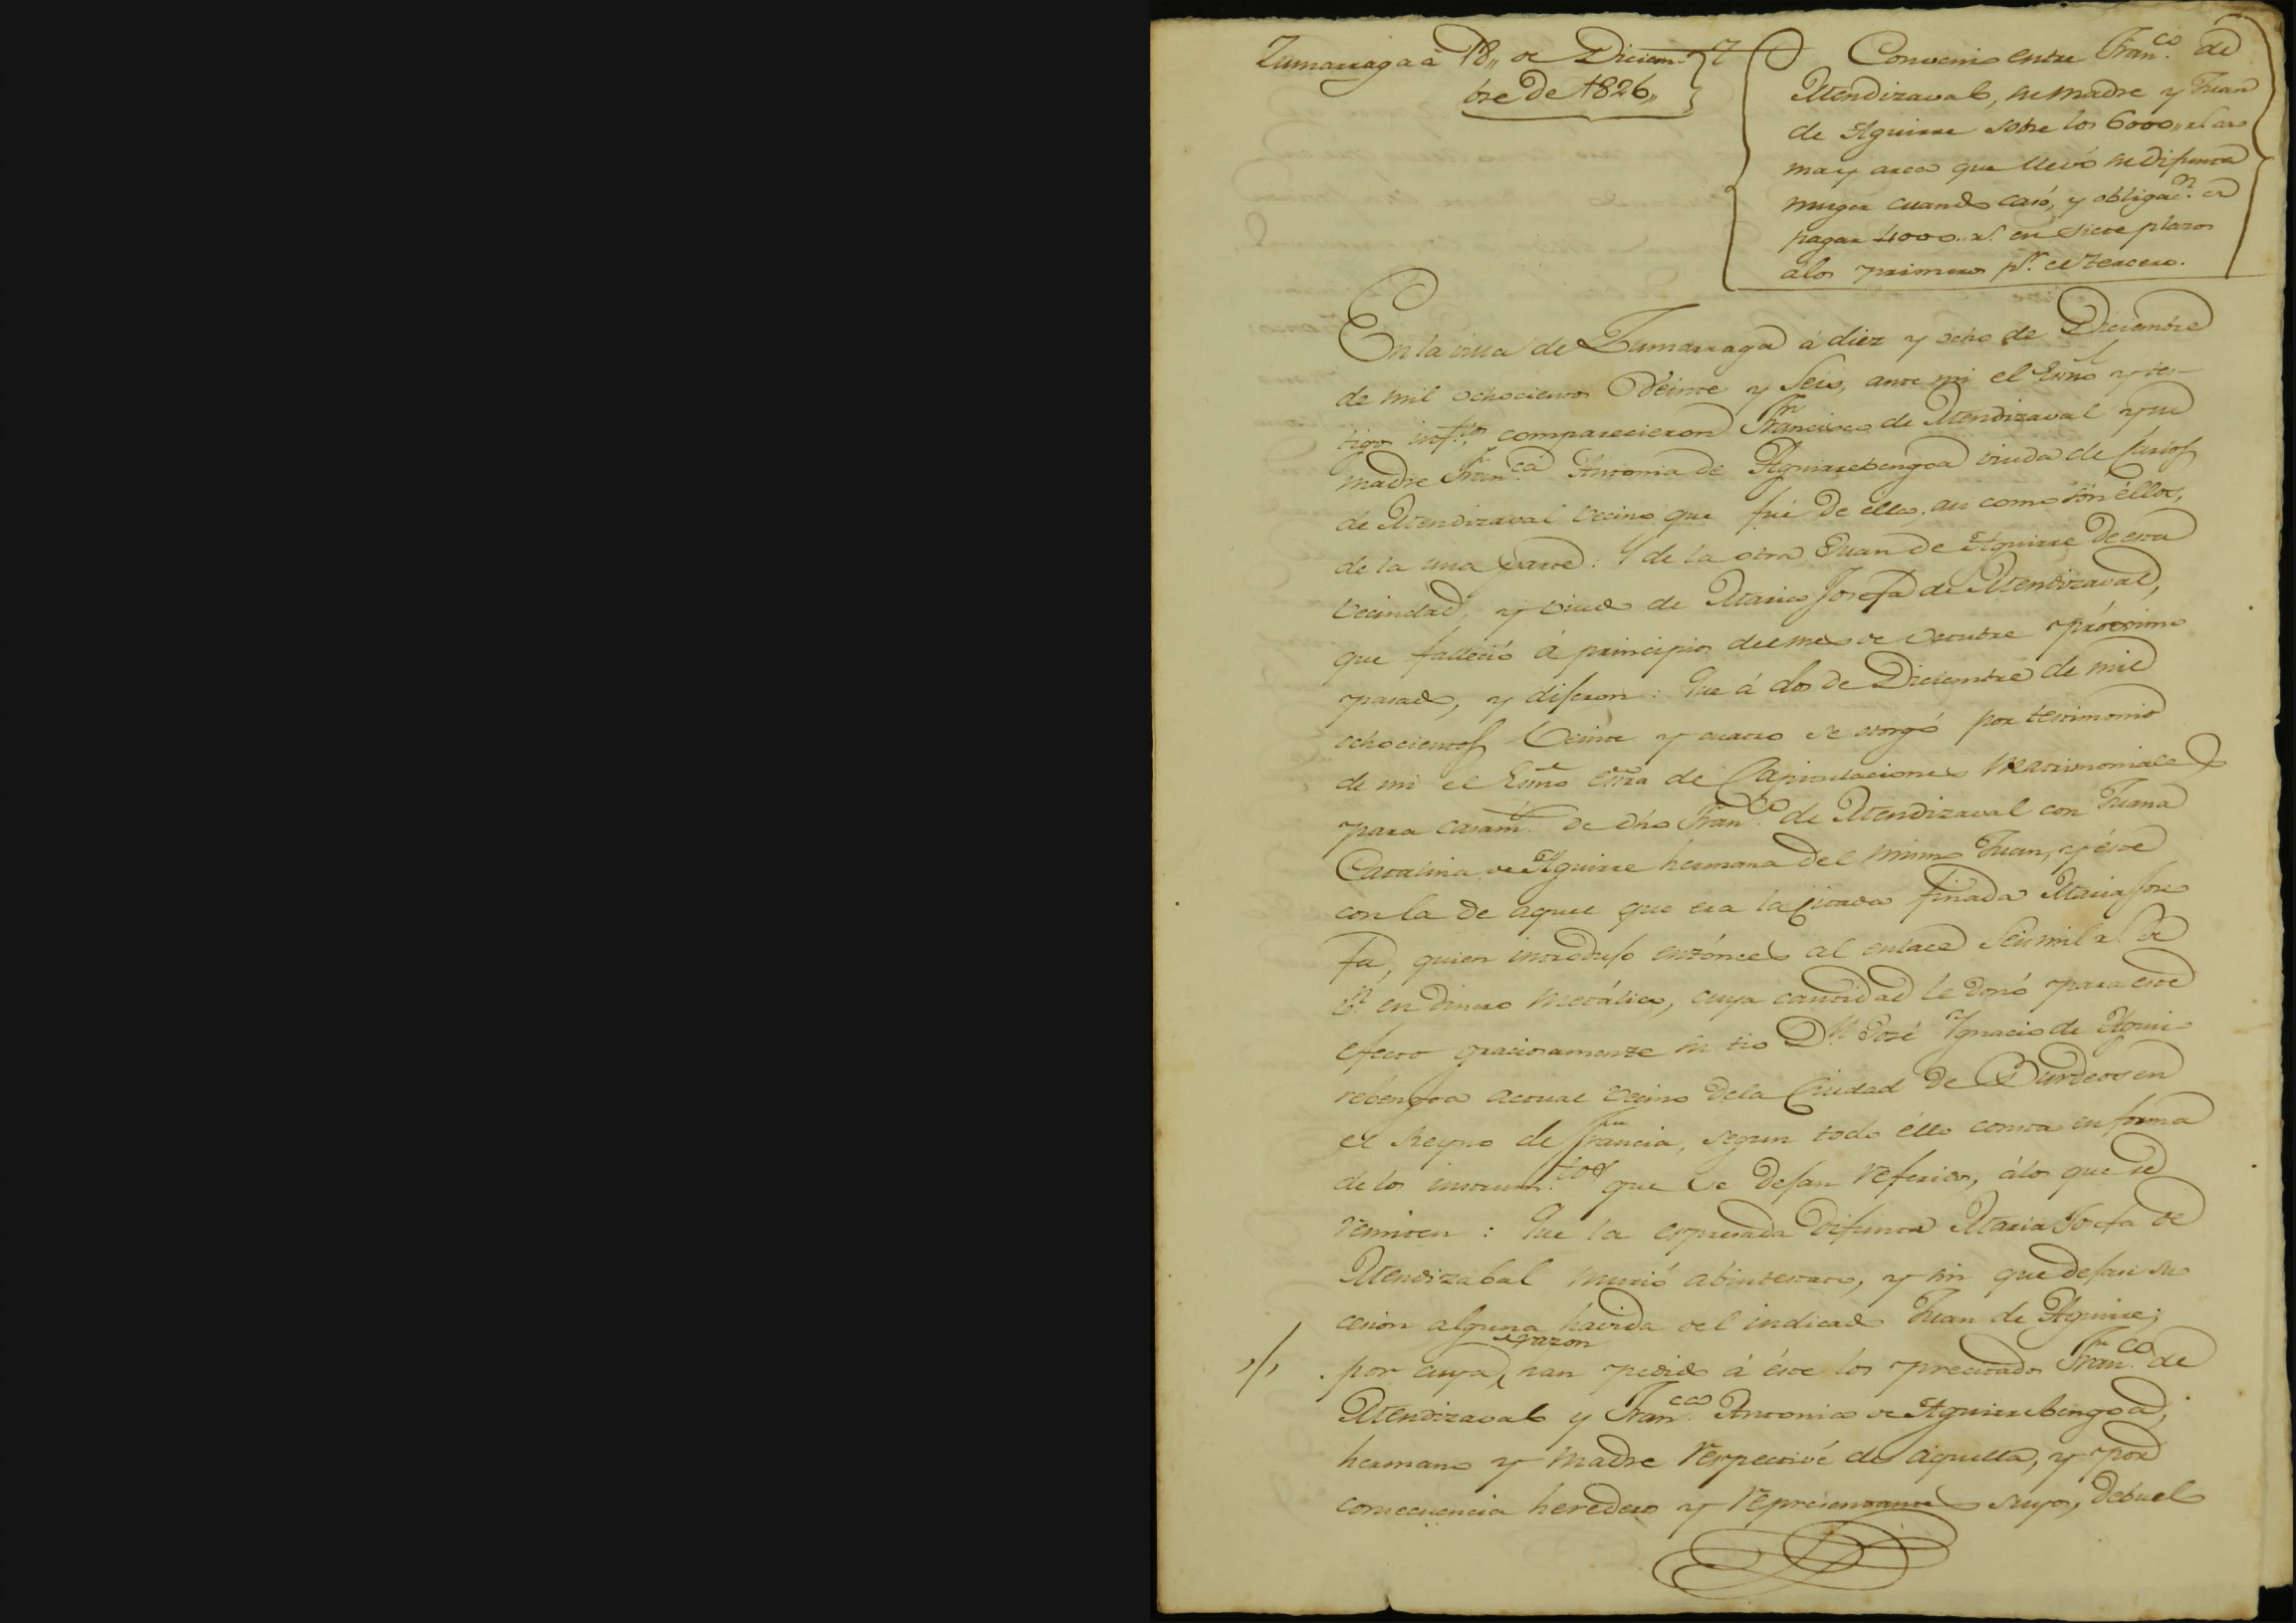 Zumarraga à 18,, de Diciem-
bre de 1826,,
Convenio entre Fran.co de
Mendizaval, su madre y Juan
de Aguirre sobre los 6000,, rs. ca
ma y arca que llevó su difunta
muger cuando casó, y obligac.n de
pagar 4000.. rs. en siete plazos
à los primeros p.r el tercero.
En la villa de Zumarraga á diez y ocho de Diciembre
de mil ochocientos veinte y seis, ante mi el Esno y tes-
tigos inf.tos comparecieron Francisco de Mendizaval y su
madre Fran.ca Antonia de Aguirrebengoa viuda de Carlos
de Mendizaval vecino que fué de ella, asi como son éllos,
de la una parte: Y de la otra Juan de Aguirre de esta
vecindad, y viudo de Maria Josefa de Mendizaval,
que falleció á principios del mes de Octubre próximo
pasado, y dijeron: Que á dos de Diciembre de mil
ochocientos veinte y cuatro se otorgó por testimonio
de mi el Esno Esra de Capitulaciones Matrimoniales
para casam.to de dho Fran.co de Mendizaval con Juana
Catalina de Aguirre hermana del mismo Juan, y éste
con la de aquel que era la citada finada Maria Jose
fa, quien introdujo entónces al enlace seis mil rs. de
v.n en dinero metálico, cuya cantidad le donó para este
efecto graciosamente su tio D.n José Ygnacio de Aguir-
rebengoa actual vecino de la Ciudad de Burdeos en
el Reyno de Francia, segun todo éllo consta en forma
de los instrum.tos que se dejan referidos, á los que se
remiten: Que la espresada difunta Maria Josefa de
Mendizabal murió abintestato, y sin que dejase su
cesion alguna havida del indicado Juan de Aguirre;
por cuya razon han pedido á éste los precitados Fran.co de
Mendizaval y Fran.ca Antonia de Aguirrebengoa,
hermano y madre respectivé de aquella, y por
consecuencia herederos y representantes suyos, debuel